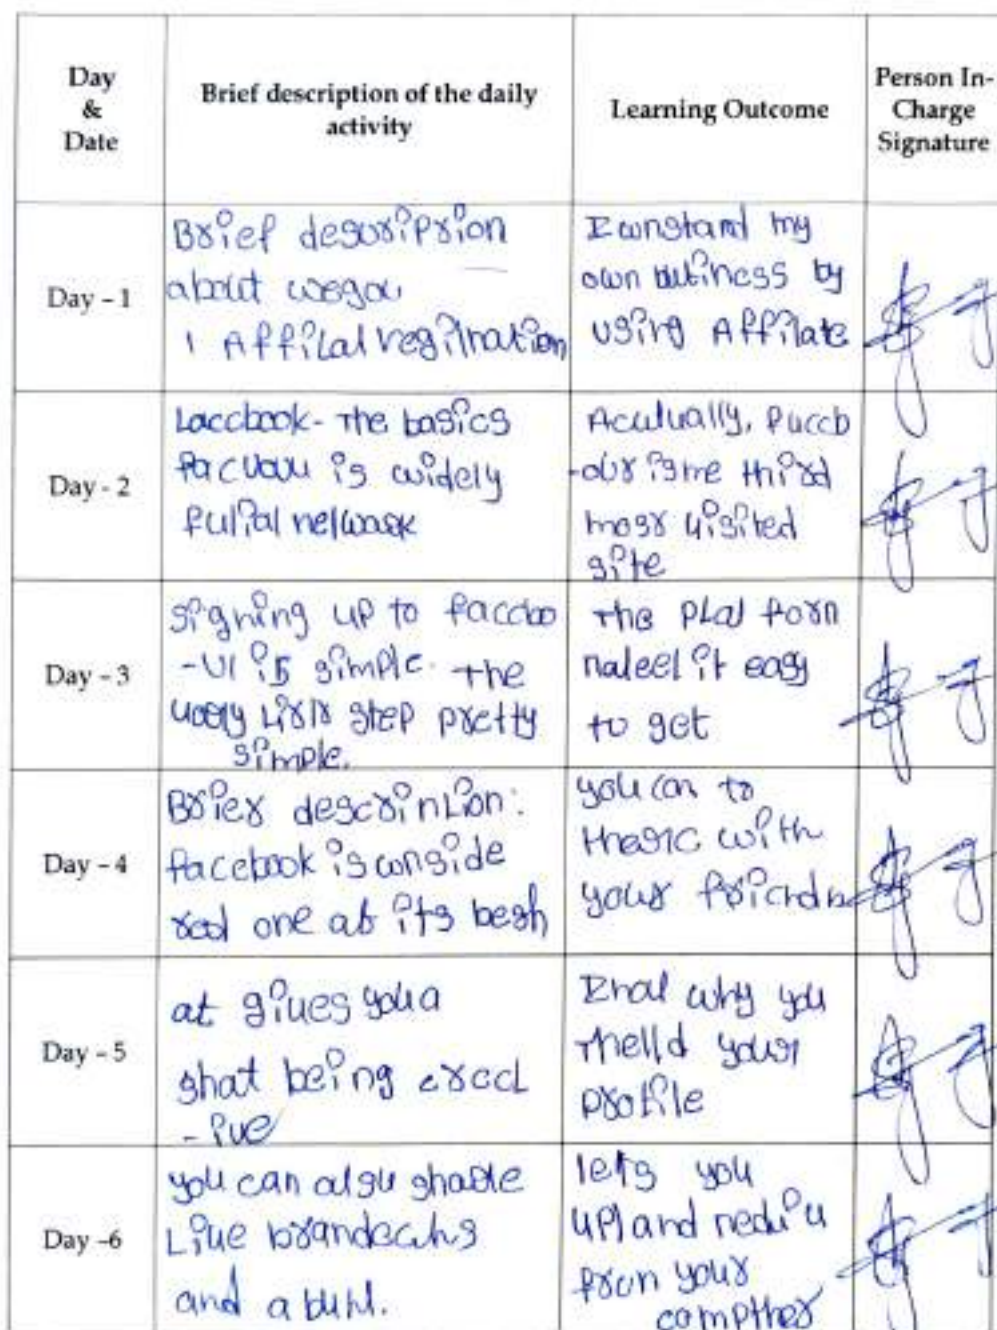 Day
&
Date
Brief description of the daily
activity
Learning Outcome
Person In-
Charge
Signature
Day - 1
Brief desuription
about wegou
1 Affilal regilnation
I wnstand my
own butiness by
using Affilate
Day - 2
Laccbook - The basics
facuouu is widely
fulial nelwask
Acutually, Puccb
-our is me third
mosr visited
site
Day - 3
signing up to faccbo
-ul is simple. The
simple.
step pretty
The plat forn
naleel it easy
to get
Day - 4
Brier descrinLion:
facebook is conside
red one at its besh
you can to
with
your
Day - 5
at gives you a
shat being creact
-ive
why you
your
profile
Day -6
you can also sharle
Live
and a
lets you
and
fron your
compther